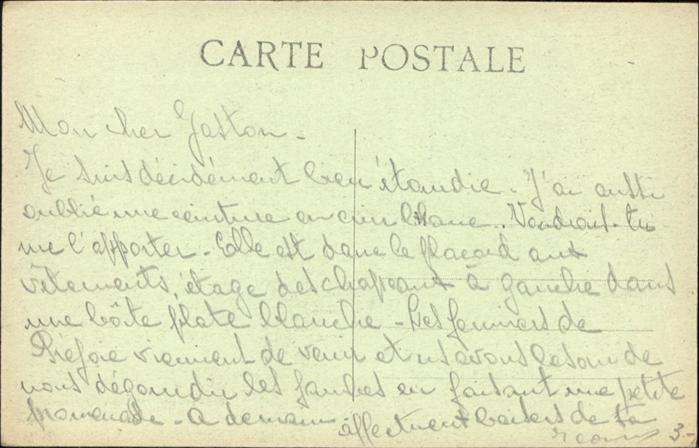 CARTE POSTALE
Mon cher Gaston -
Je suis décidément bien étourdie. J'ai aussi
oublié une ceinture en cuir blanc. Voudrais-tu
me l'apporter - Elle est dans le placard aux
vêtements, étage des chapeaux à gauche dans
une bôite plate blanche - Les fermiers de
viennent de venir et ns avons besoin de
nous dégourdir les jambes en faisant une petite
promenade - a demain affectueux baisers de ta
3-